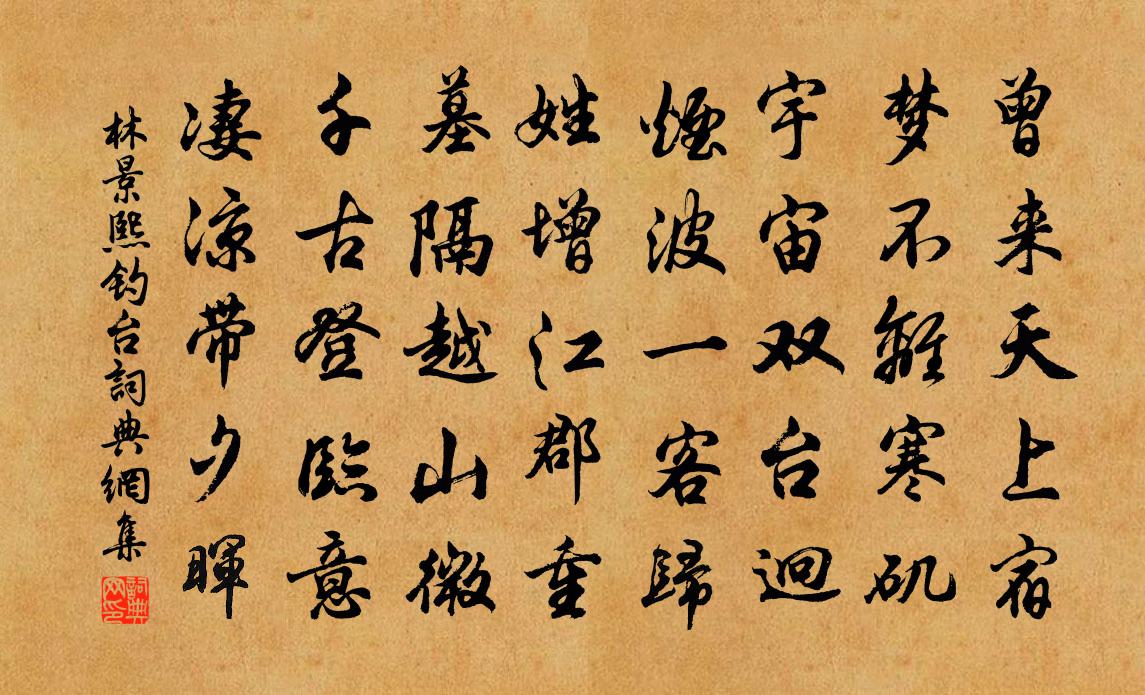 曾来天上宿
梦不離寒矶
宇宙双台迥
煙波一客歸
姓增江郡重
墓隔越山微
千古登臨意
凄凉带夕暉
林景熙钓台詞典網集
詞典网印